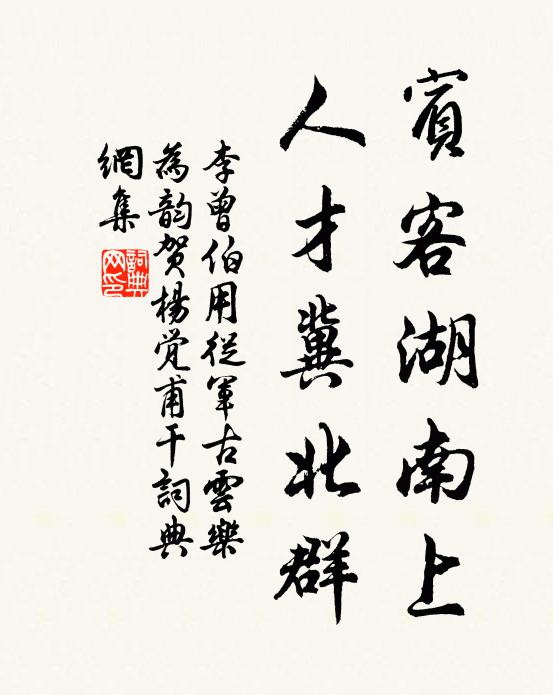 賓客湖南上
人才冀北群
李曾伯用從軍古雲樂
為韵贺楊覚甫干詞典
網集
詞典
网印